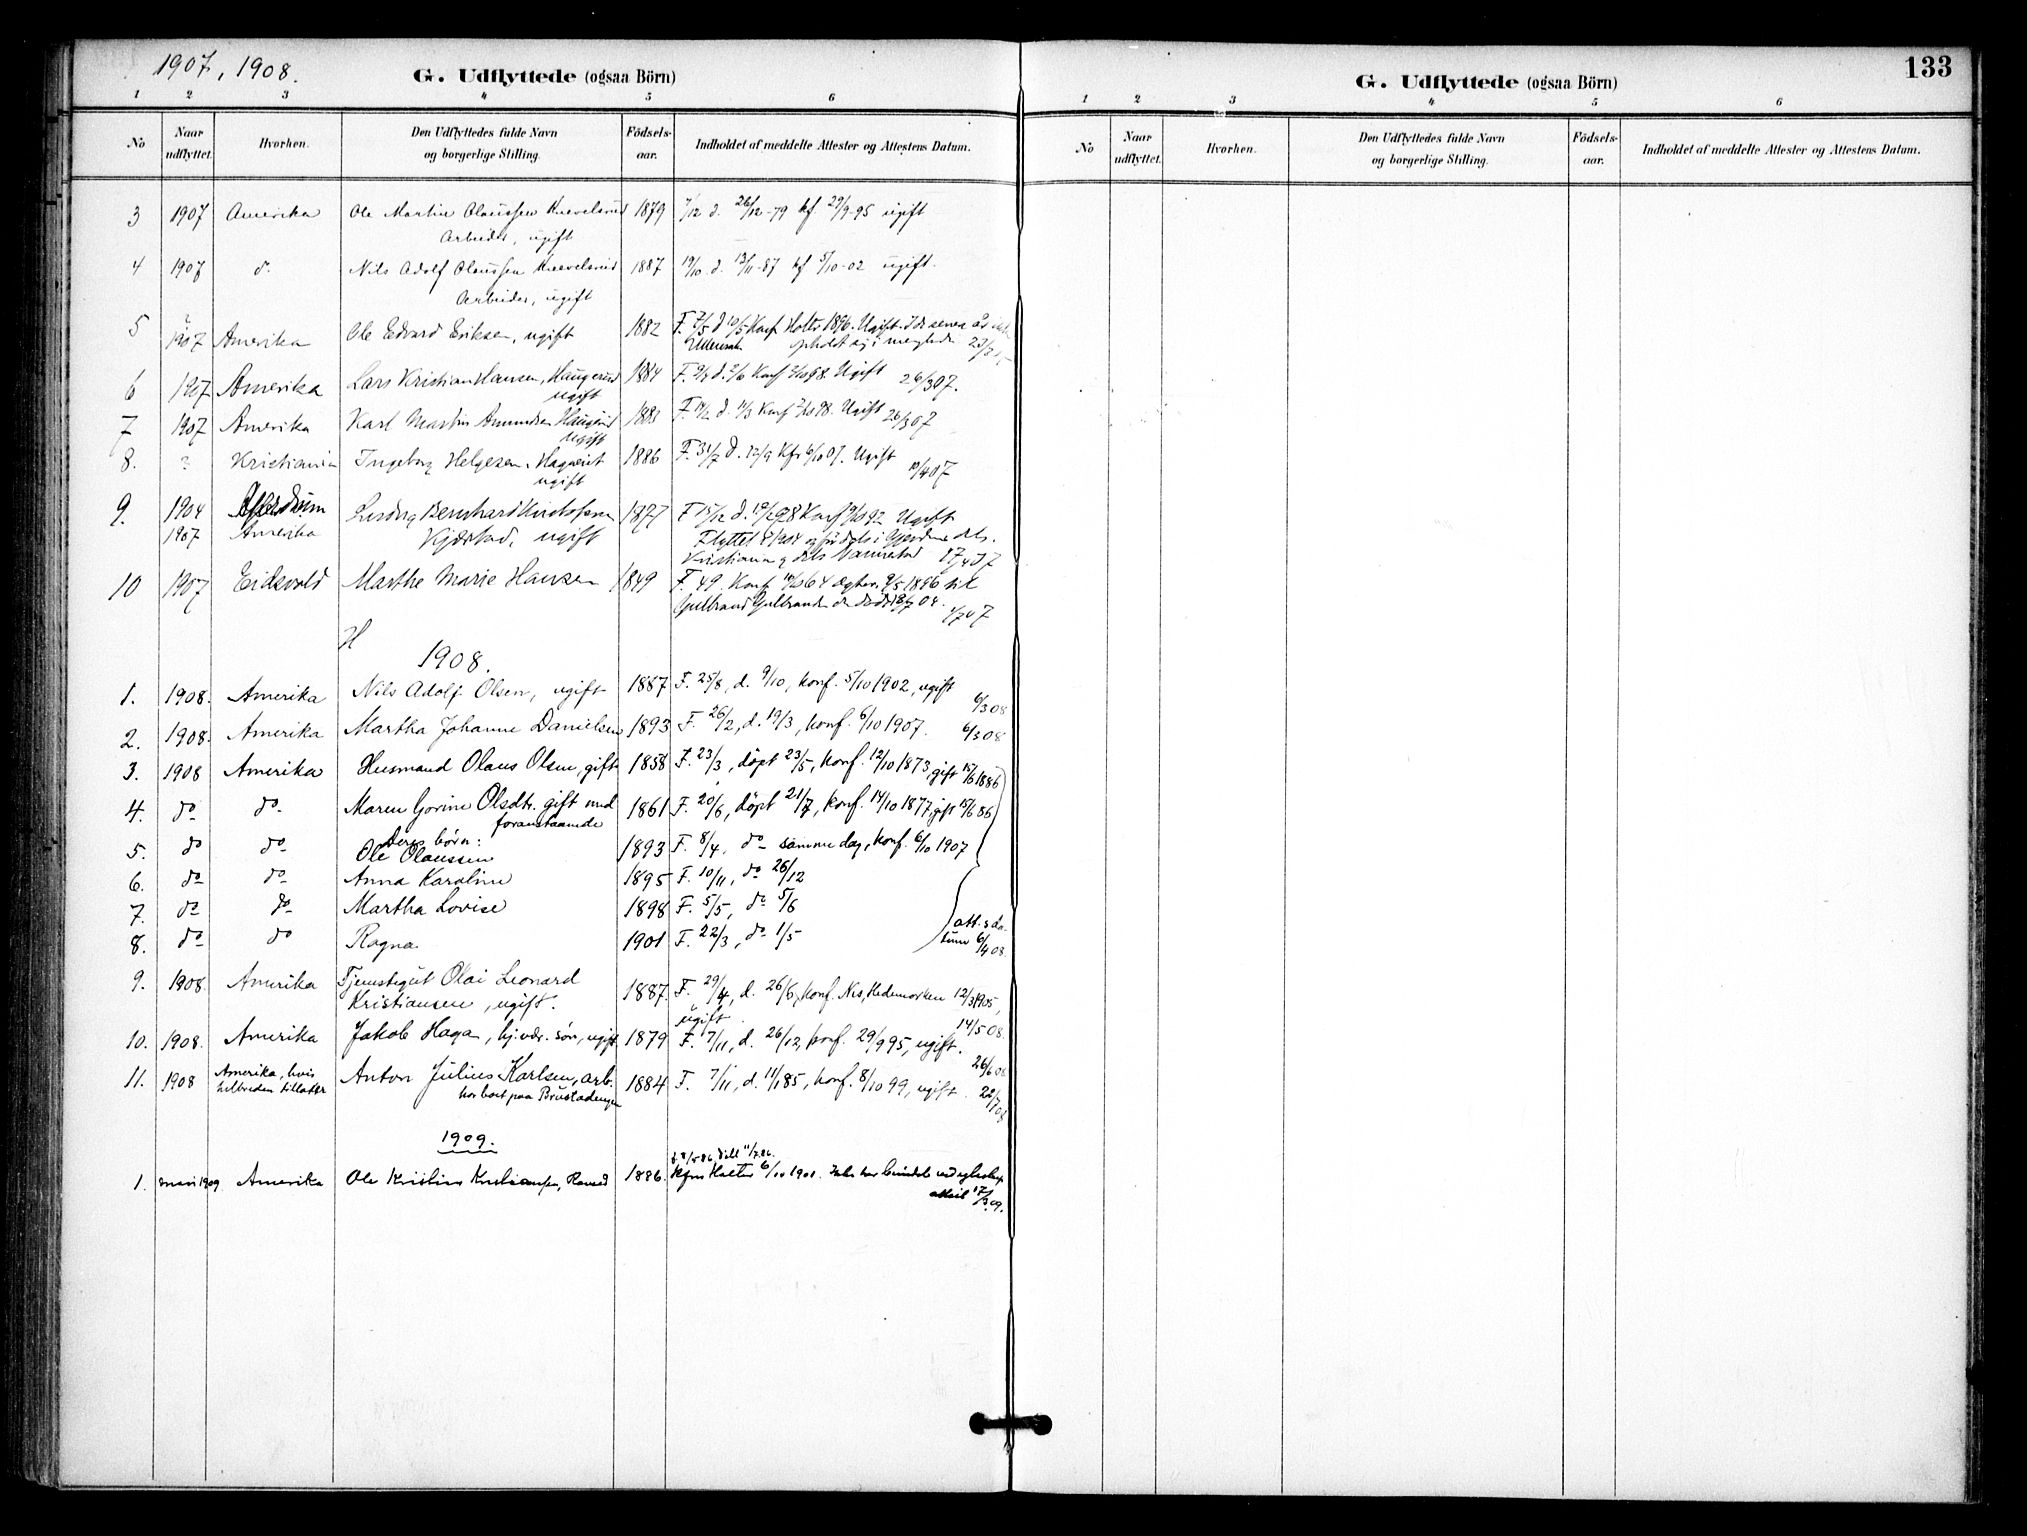 1907, 1908.
G. Udflyttede (ogsaa Börn)
1 2 3 4 5 6
No
Naar udflyttet.
Hvorhen.
Den Udflyttedes fulde Navn og borgerlige Stilling.
Födsels-aar.
Indholdet af meddelte Attester og Attestens Datum.
3 1907 Amerika Ole Martin Olaussen 1879 7/12 d. 26/12-79 kf 29/9-95 ugift
Arbeider, ugift
4 1907 do. Nils Adolf Olaussen 1887 19/10 d. 13/11-87 kf 5/10-02 ugift.
Arbeider, ugift
5 1907 Amerika Ole Edvard Eriksen, ugift 1882 F. 7/5 d 10/5 Konf Holter 1896. Ugift. I de senere år
Ullensak opholdt sig i
6 1907 Amerika Lars Kristian Hansen, Haugerud 1884 Ugift 26/307.
ugift
7 1907 Amerika Karl Martin Amundsen Haugerud Ugift 26/307
ugift
8. ? Kristiania Ingeborg Helgesen, 1886 F. 31/7 d. 12/9 Kfr 6/10 01. Ugift 10/407
ugift
9. 1904 Bernhard Kristofersen 1877 F 15/12 Ugift
1907 Amerika Kjærstad, ugift Flyttet
Kristiania og dels Nannestad
10 1907 Eidsvold Marthe Marie Hansen 1849 F. 49, Konf
Gulbrand Gulbrandsen
1908.
1. 1908. Amerika Nils Adolf Olsen, ugift 1887 F. 25/8, d. 9/10, konf. 5/10 1902, ugift 6/308
2. 1908. Amerika Martha Johanne Danielsen 1893 F. 26/2, d. 19/3, konf. 6/10 1907. 6/308
3. 1908 Amerika Husmand Olaus Olsen, gift 1858 F. 23/3, döpt 23/5, konf. 12/10 1873, gift 15/6 1886
4. do do. Maren Gorine Olsdtr. gift med 1861 F. 20/6, döpt 21/7, konf. 14/10 1877, gift 15/6 86
foranstaaende
Deres børn:
5. do do Ole Olaussen 1893 F. 8/4, do samme dag, konf. 6/10 1907
6. do do Anna Karoline 1895 F. 10/11, do 26/12
7. do do Martha Lovise 1898 F. 5/5, do 5/6
8. do do Ragna 1901 F. 22/3, do 1/5
att.s da-
tum 6/4 08.
9. 1908 Amerika Tjenstegut Olai Leonard
Kristiansen, ugift. 1887. F. 29/4, d. 26/6, konf. Nes, Hedemarken 12/3 1905,
ugift 14/5 08.
10. 1908. Amerika Jakob Haga, hj.vær. søn, ugift 1879 F. 7/11, d. 26/12, konf. 29/9 95, ugift.
26/6 08
11. 1908 Amerika, hvis Anton Julius Karlsen, arb. 1884 F. 7/11, d. 11/1 85, konf. 8/10 99, ugift. 22/7 08
helbreden tillater har boet paa Brustadengen
1909.
1. mars 1909 Amerika Ole Kristian Kristiansen, 1886. f. 8/5 86 döbt 11/7 86.
Kfm Holter 6/10 1901.
attest 17/3 09.
133
G. Udflyttede (ogsaa Börn)
1 2 3 4 5 6
No
Naar udflyttet.
Hvorhen.
Den Udflyttedes fulde Navn og borgerlige Stilling.
Födsels-aar.
Indholdet af meddelte Attester og Attestens Datum.